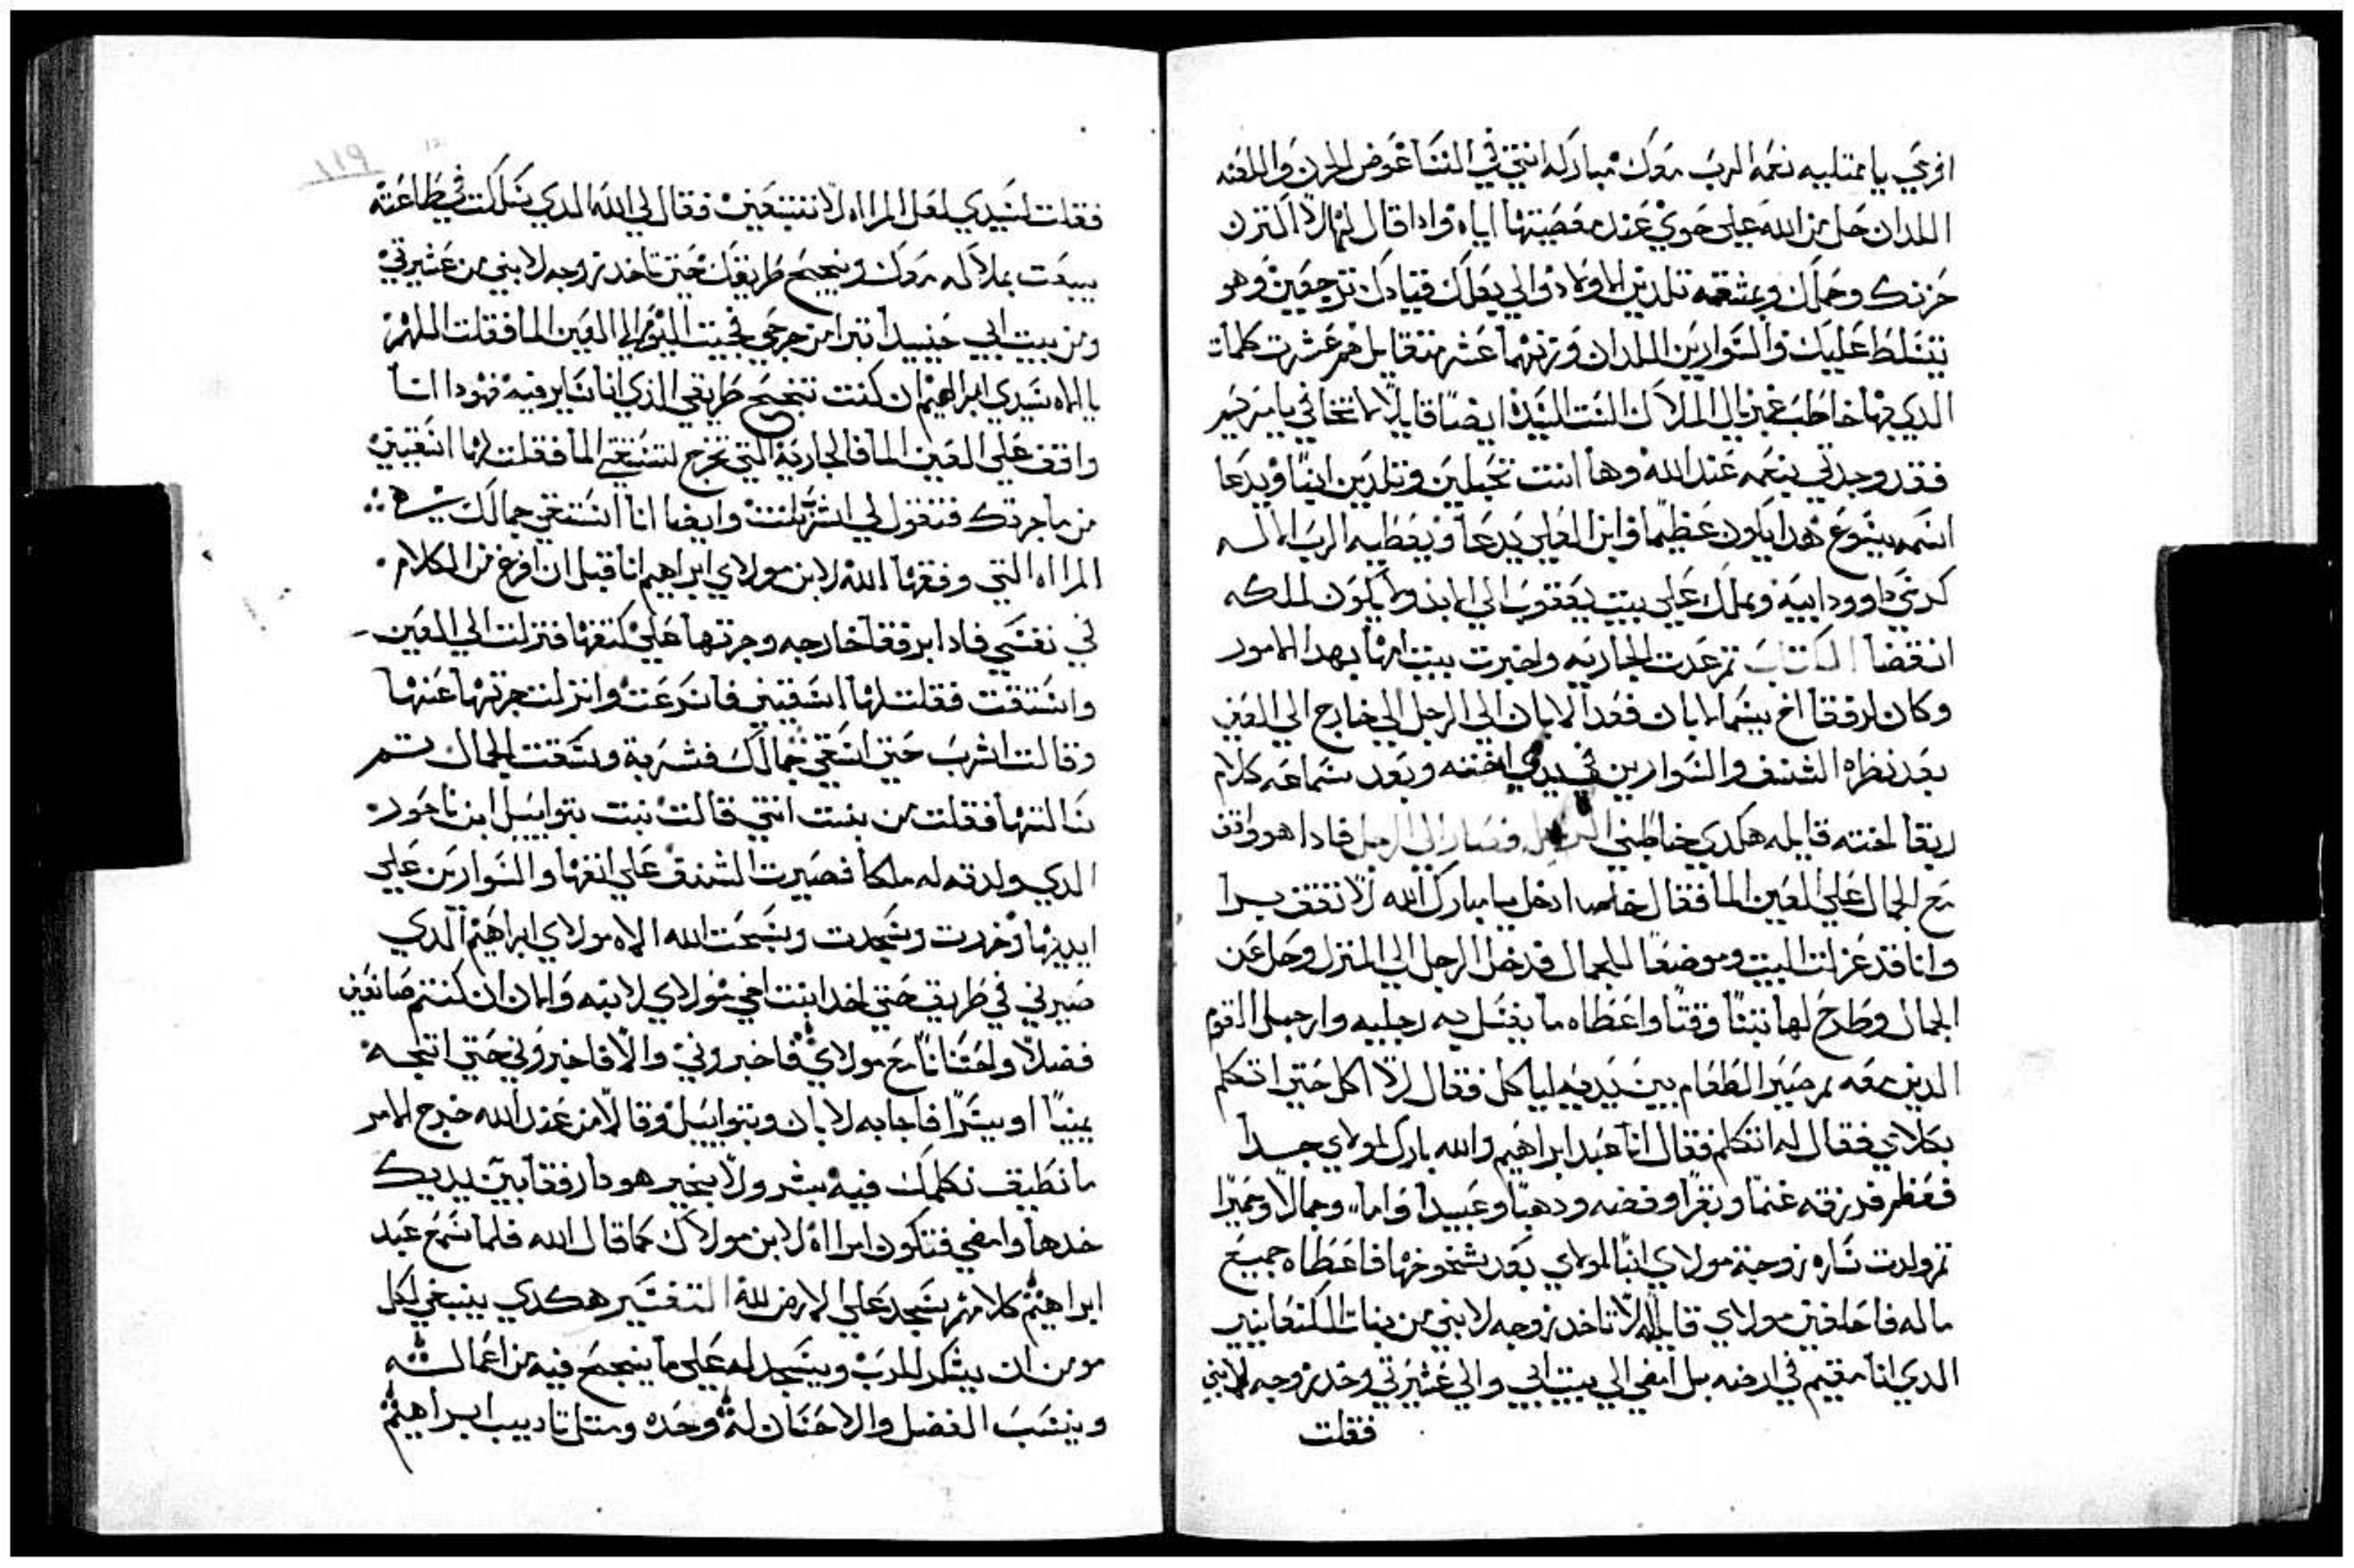 افرحي يا ممتليه نعمه الرب معك مباركه انتي في النسا عوض الحزن واللعنه
اللدان حل من الله علي حوي عند معصيتها اياه واذا قال لها لاكترن
حزنك وحملك وبمشقه تلدين الاولاد والي بعلك قيادك ترجعين وهو
يتسلط عليك والسوارين اللدان وزنهما عشره تقابل هم عشرت كلمات
الدي بها خاطب غبريال الملاك الست السيده ايضا قايلا لا تخافي يا مريم
فقد وجدتي نعمه عند الله وها انت تحبلين وتلدين ابنا ويدعا
اسمه يشوع هدا يكون عظيما وابن العلي يدعا ويعطيه الرب الاله
كرسي داوود ابيه ويملك علي بيت يعقوب الي الابد ولا يكون لملكه
انقضا الكتاب ثم عدت الجاريه واخبرت بيت امها بهدا الامور
وكان لرفقا اخ يسما لابان فعدا لابان الي الرجل الي خارج الي العين
بعد نظراه الشنف والسوارين في يدي اخته وبعد سماعه كلام
ربقا اخته قايله هكدي خاطبني الرجل فصار الي الرجل فادا هو واقف
مع الجمال علي العين الما فقال هلم ادخل يا مبارك الله لا تقف برا
وانا قد عزلت البيت وموضعا للجمال فدخل الرجل الي المنزل وحل عن
الجمال وطرح لها تبنا وقتا واعطاه ما يغسل به رجليه وارجل القوم
الدين معه ثم صير الطعام بين يديه لياكل فقال لا اكل حتي اتكلم
بكلامي فقال له اتكلم فقال انا عبد ابراهيم والله بارك لمولاي جدا
فعظم قد رزقه غنما وبقرا وفضه ودهبا وعبيدا واما وجمالا وحميرا
ثم ولدت ساره زوجة مولاي ابنا لمولاي بعد شيخوختها فاعطاه جميع
ماله فاحلفني مولاي قايلا لا تاخد زوجه لابني من بنات الكنعانيين
الدي انا مقيم في ارضه بل امضي الي بيت ابي والي عشيرتي وخد زوجه لابني
فقلت
١١٩
فقلت لسيدي لعل المراه لا تتبعني فقال لي الله الدي سلكت في طاعته
يبعت بملاكه معك وينجح طريقك حتي تاخد زوجه لابني من عشيرتي
ومن بيت ابي حينيد تبرا من حرجي فجيت اليوم الي العين الما فقلت اللهم
يا الاه سيدي ابراهيم ان كنت تنجح طريقي الذي انا ساير فيه فهودا انا
واقف علي العين الما فالجاريه التي تخرج لتستقي الما فقلت لها اسقيني
من ما جرتك فتقول لي اشرب انت وايضا انا استقي جمالك
المراه التي وفقها الله لابن مولاي ابراهيم انا قبل ان افرغ من الكلام
في نفسي فادا برفقا خارجه وجرتها علي كتفها فنزلت الي العين
واستقت فقلت لها اسقيني فاسرعت وانزلت جرتها عنها
وقالت اشرب حتي اسقي جمالك فشربة وسقت الجمال تم
سالتها فقلت من بنت انتي قالت بنت بتواييل ابن ناحور
الدي ولدته له ملكا فصيرت الشنف علي انفها والسوارين علي
ايديها وخررت وسجدت وسبحت الله الاه مولاي ابراهيم الدي
صيرني في طريق حتي اخد ابنت اخي مولاي لابنه والان ان كنتم صانعين
فضلا واحسانا مع مولاي فاخبروني والا فاخبروني حتي اتجه
يمينا او يسرا فاجابه لابان وبتواييل وقالا من عند الله خرج الامر
ما نطيق نكلمك فيه بشر ولا بخير هودا رفقا بين يديك
خدها وامضي فتكون امراه لابن مولاك كما قال الله فلما سمع عبد
ابراهيم كلامهم سجد علي الارض لله التفسير هكدي ينبغي لكل
مومن ان يشكر للرب ويسجد له علي ما ينجح فيه من اعماله
وينسب الفضل والاحسان له وحده ومتل تاديب ابراهيم